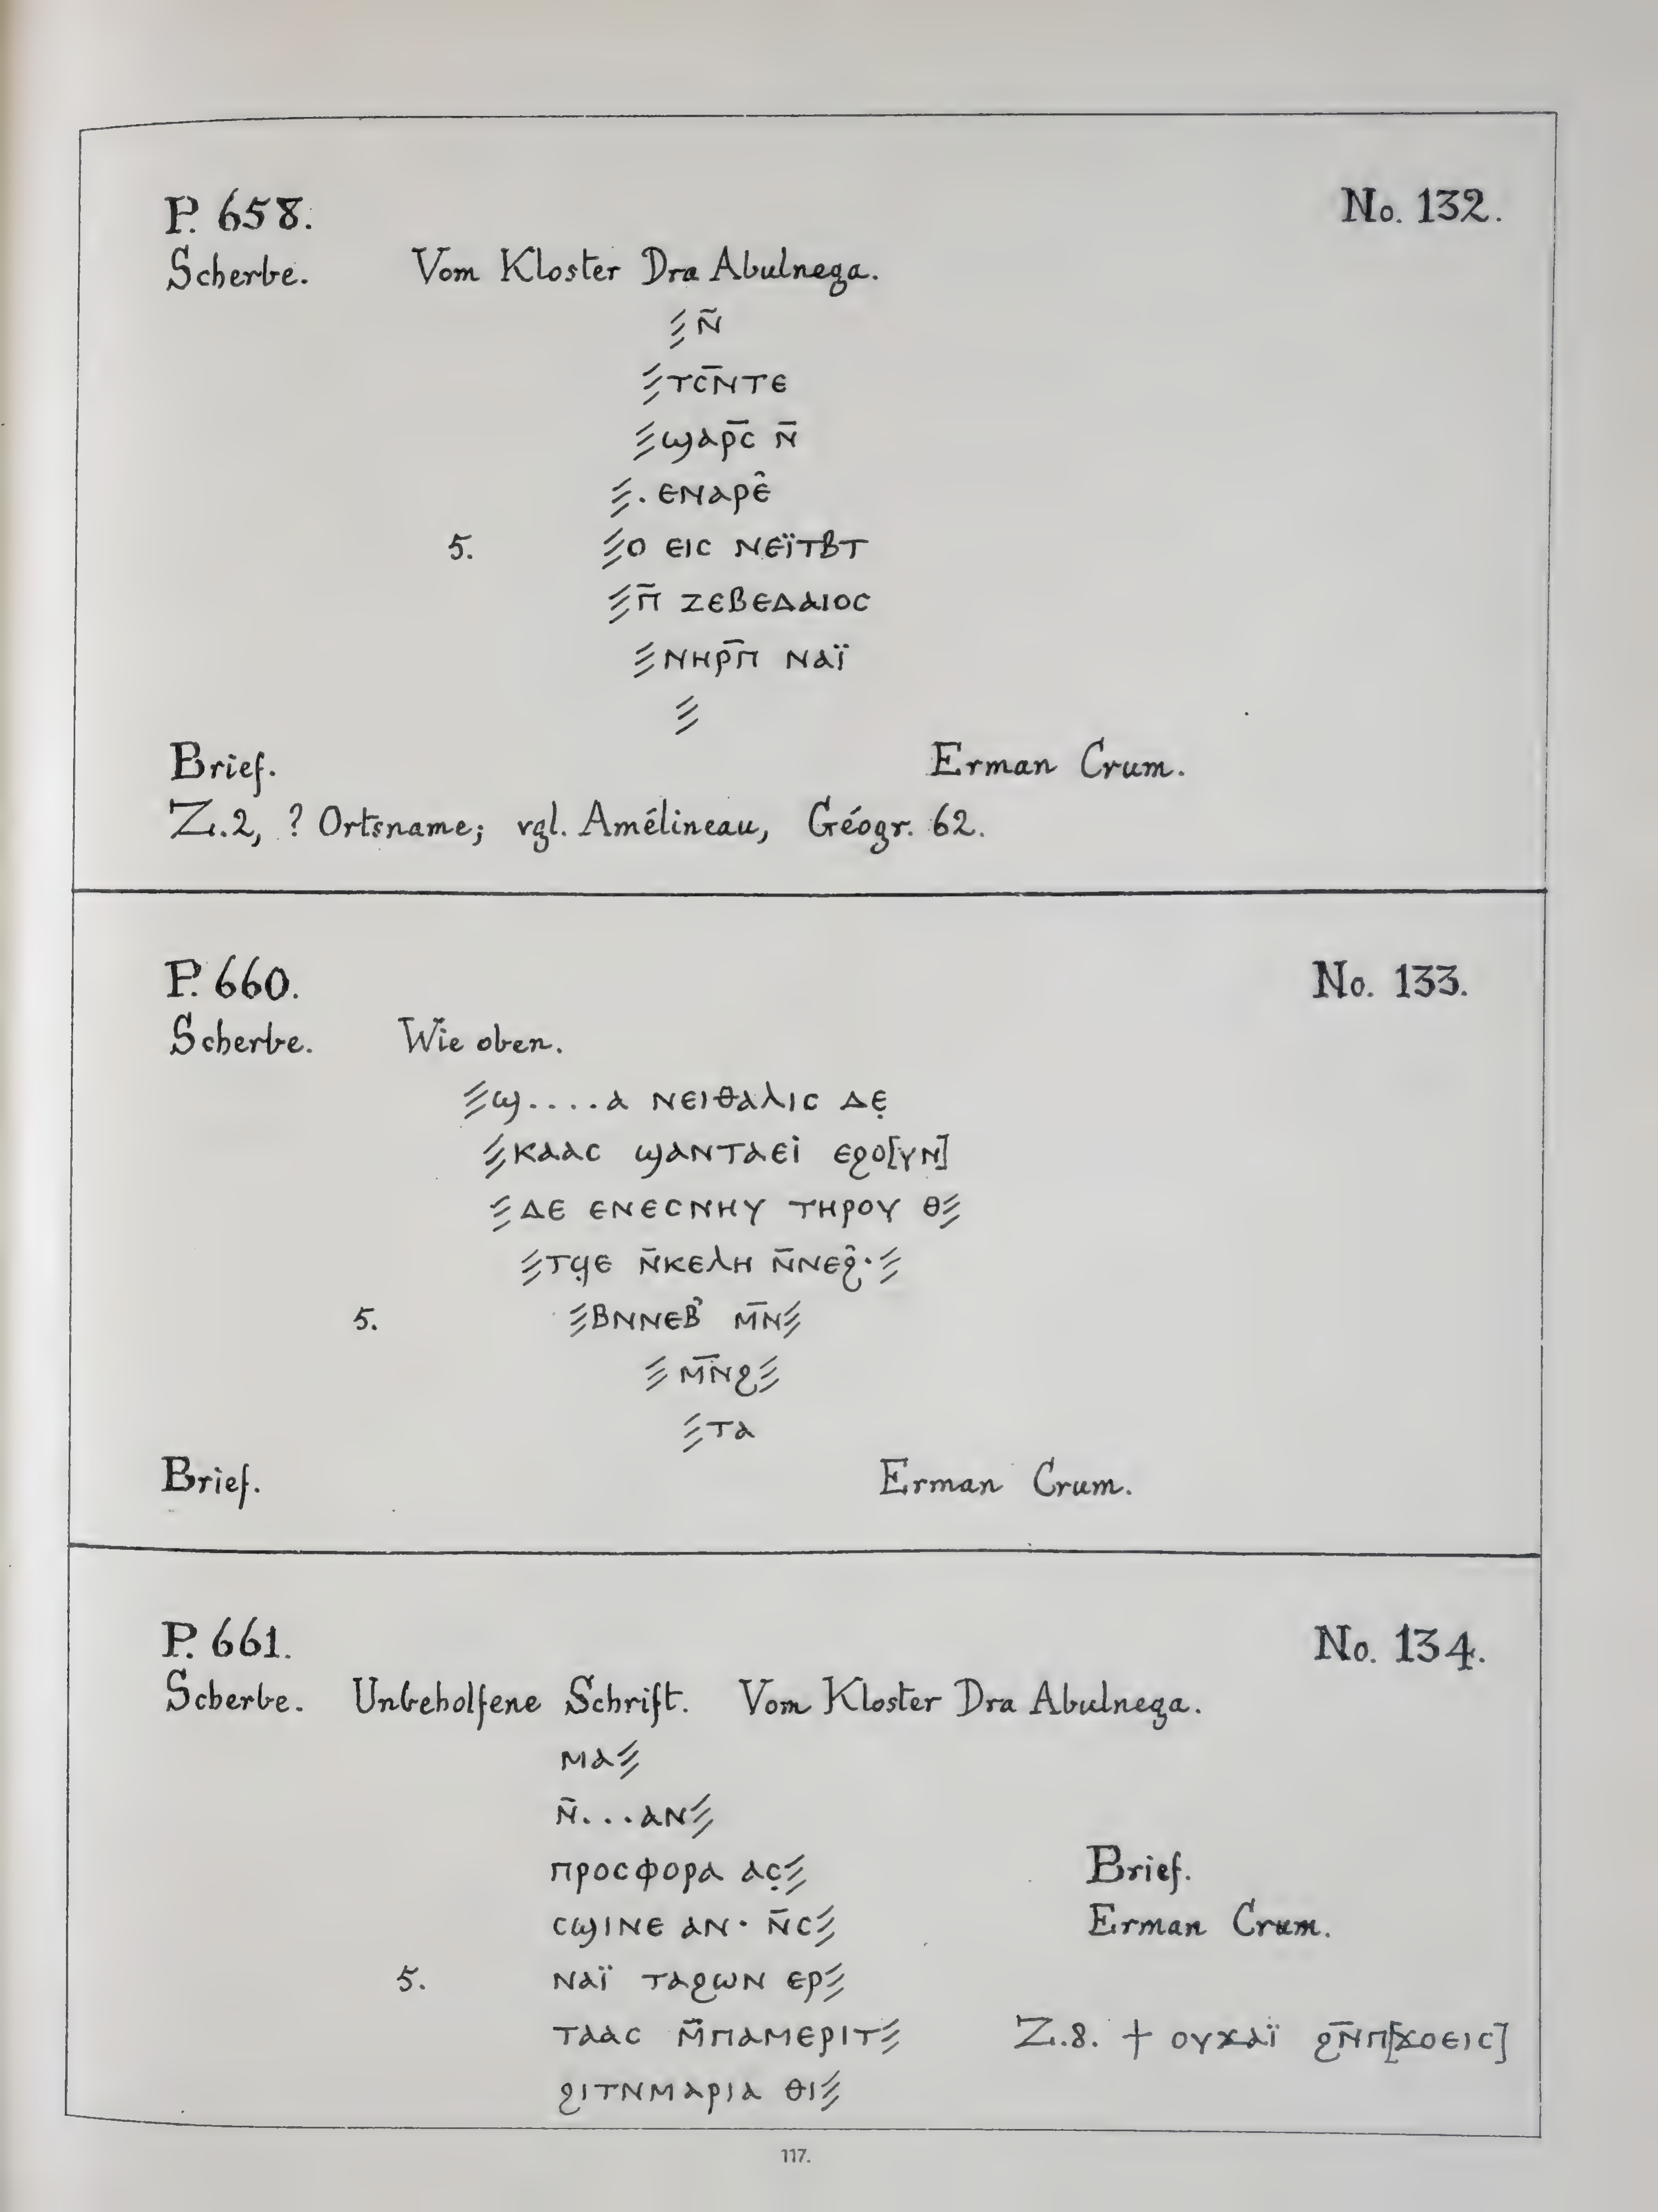 P. 658. No. 132.
Scherbe. Vom Kloster Dra Abulnega.
⳿⫽ⲛ̄
⫽ⲧⲥⲛ̄ⲧⲉ
⫽ϣⲁⲣⲥ̄ ⲛ̄
⫽. ⲉⲛⲁⲣⲉ̂
5. ⫽ⲟ ⲉⲓⲥ ⲛⲉⲓ̈ⲧⲃⲧ
⫽ⲡ̄ ⲍⲉⲃⲉⲇⲁⲓⲟⲥ
⫽ⲛⲏⲣⲡ̄ ⲛⲁⲓ̈
⫽
Brief. Erman Crum.
Z.2, ? Ortsname; vgl. Amélineau, Géogr. 62.
P. 660. No. 133.
Scherbe. Wie oben.
⫽ϣ....ⲁ ⲛⲉⲓⲑⲁⲗⲓⲥ ⲇⲉ̣
⫽ⲕⲁⲁⲥ ϣⲁⲛⲧⲁⲉⲓ̇ ⲉϩⲟ[ⲩⲛ]
⫽ⲇⲉ ⲉⲛⲉⲥⲛⲏⲩ ⲧⲏⲣⲟⲩ ⲑ⫽
⫽ⲧϥ̣ⲉ ⲛ̄ⲕⲉⲗⲏ ⲛ̄ⲛⲉϩ̂·⫽
5. ⫽ⲃⲛⲛⲉⲃ̓ ⲙⲛ̄⫽
⫽ⲙⲛ̄ϩ⫽
⫽ⲧⲁ
Brief. Erman Crum.
P. 661. No. 134.
Scherbe. Unbeholfene Schrift. Vom Kloster Dra Abulnega.
ⲙⲁ⫽
ⲛ̄...ⲁⲛ⫽
ⲡⲣⲟⲥⲫⲟⲣⲁ ⲁⲥ̣⫽ Brief.
ⲥϣⲓⲛⲉ ⲁⲛ· ⲛ̄ⲥ⫽ Erman Crum.
5. ⲛⲁⲓ̈ ⲧⲁϩⲱⲛ ⲉⲣ⫽
ⲧⲁⲁⲥ ⲙ̄ⲡⲁⲙⲉⲣⲓⲧ⫽ Z.8. + ⲟⲩϫⲁⲓ̈ ϩⲛ̄ⲡ[ϫⲟⲉⲓⲥ]
ϩⲓⲧⲛⲙⲁⲣⲓⲁ ⲑⲓ⫽
117.